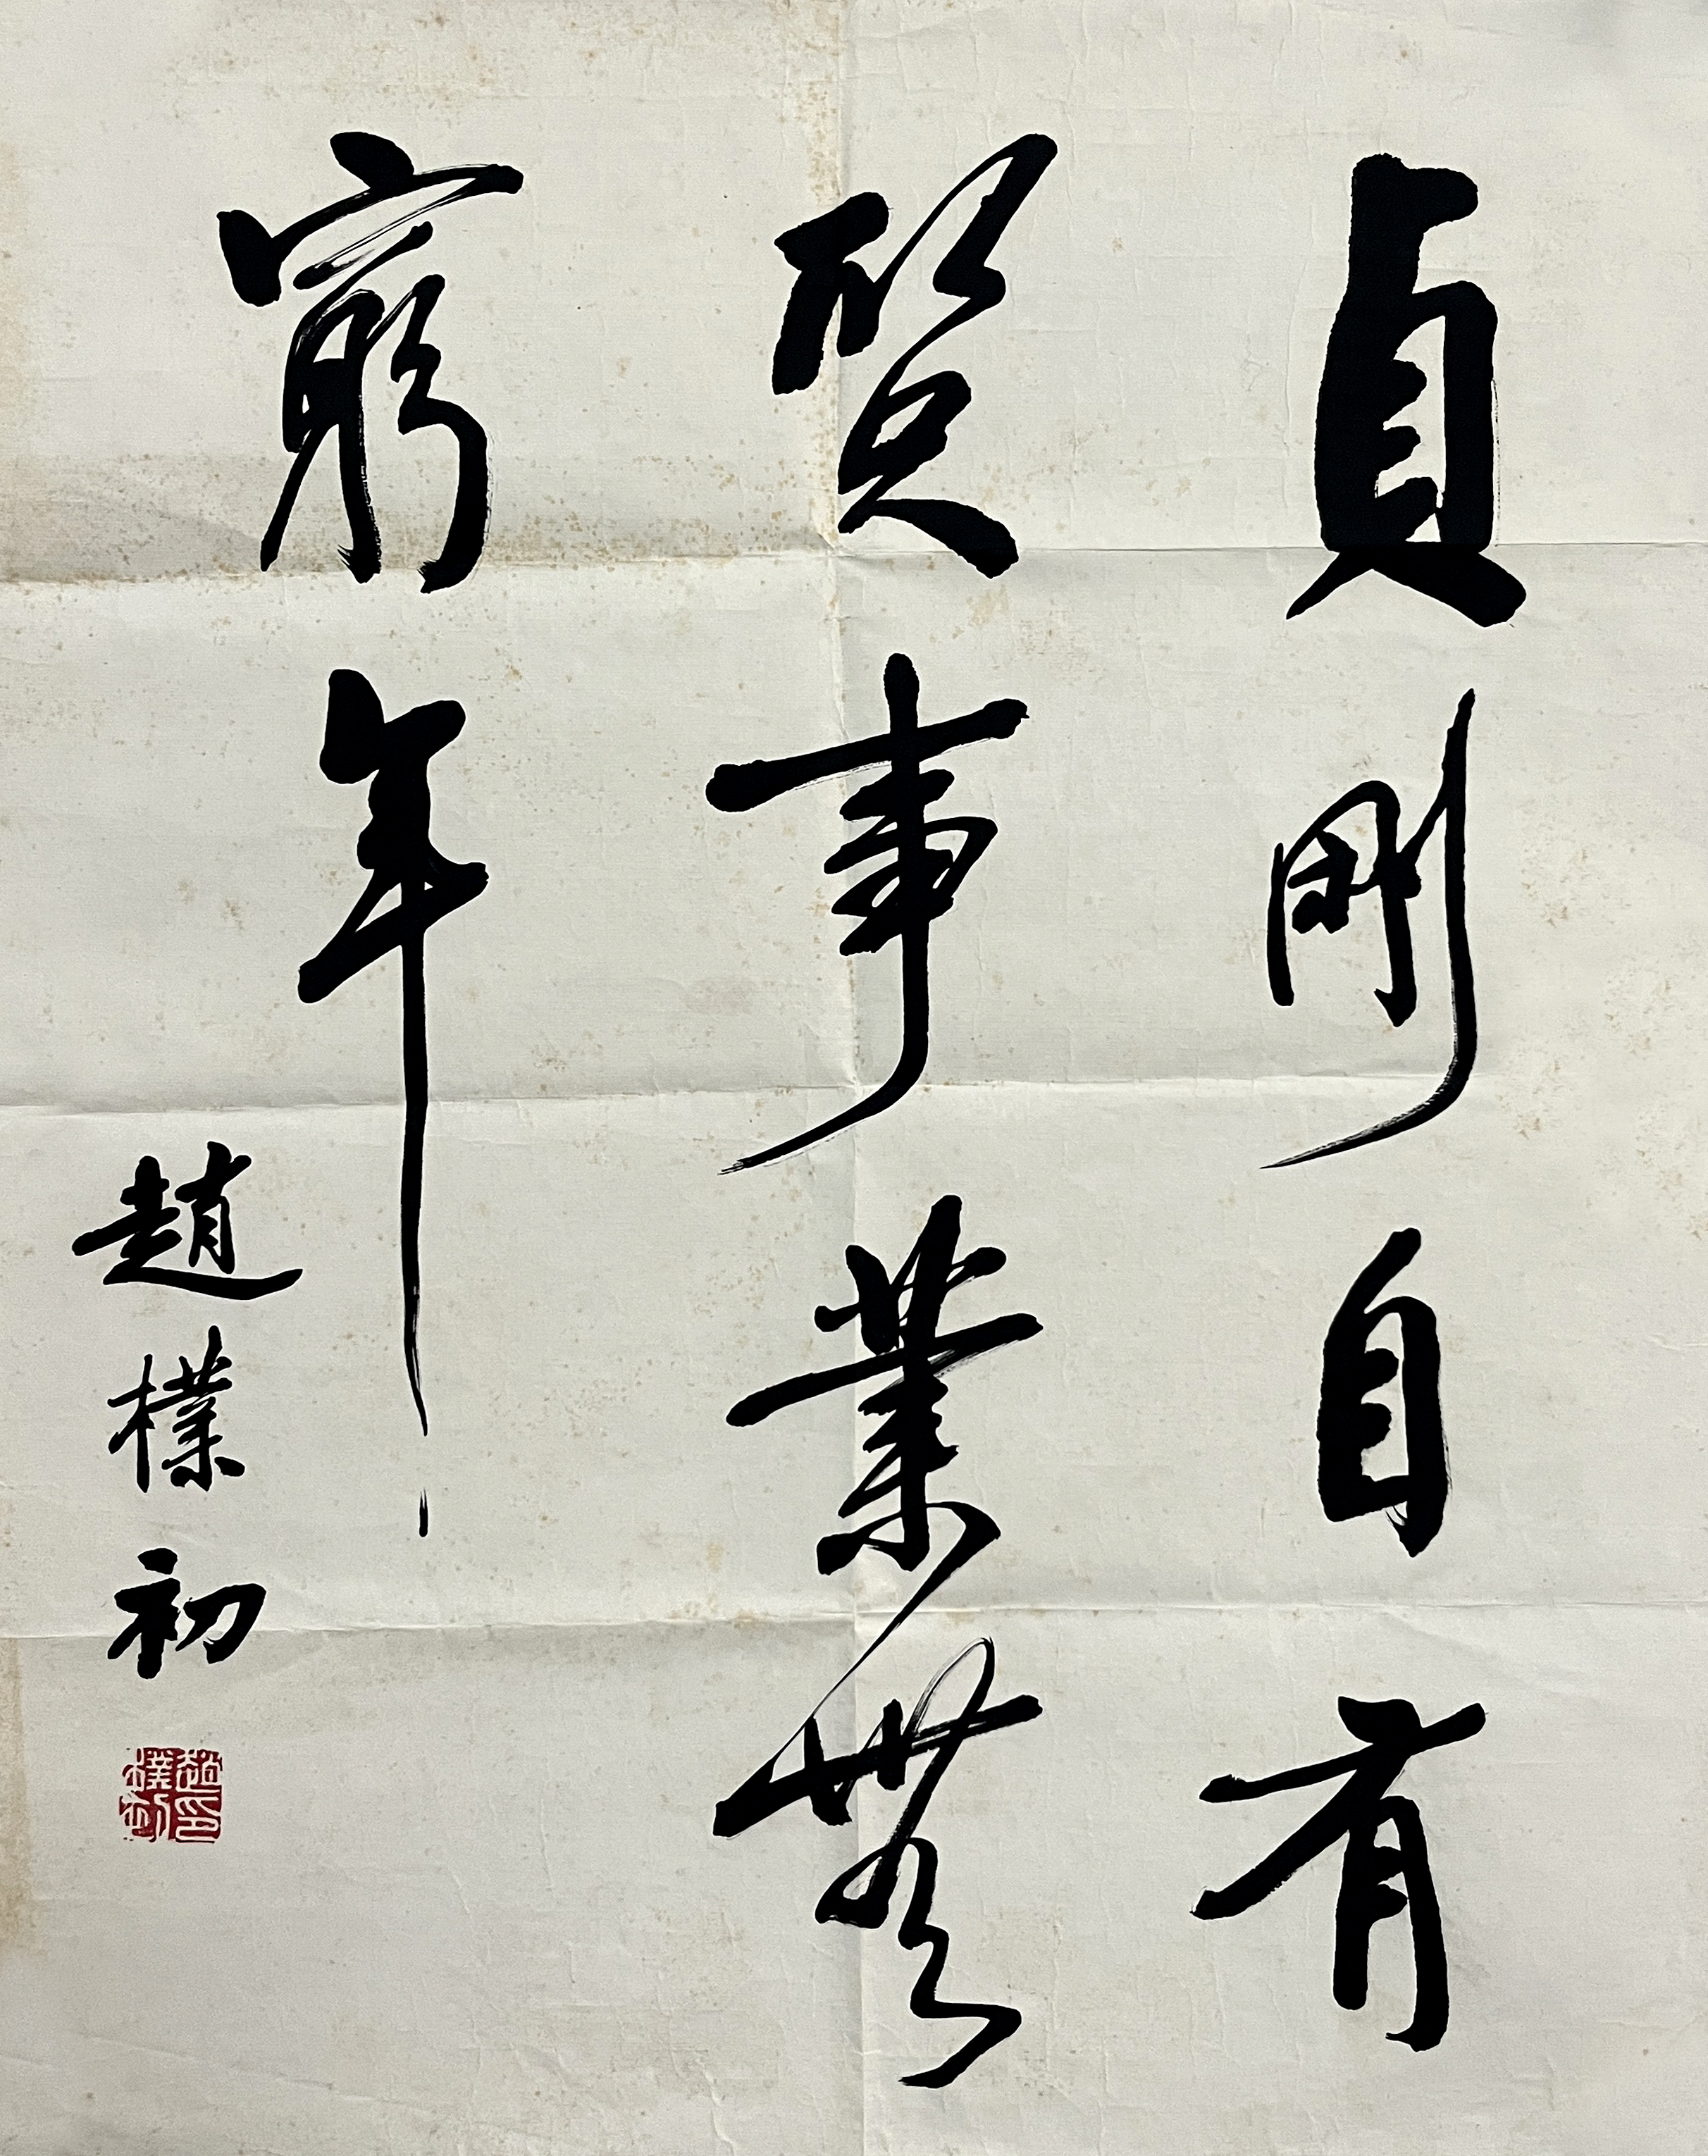 貞剛自有
賢事業無
窮年
趙樸初
趙樸初印